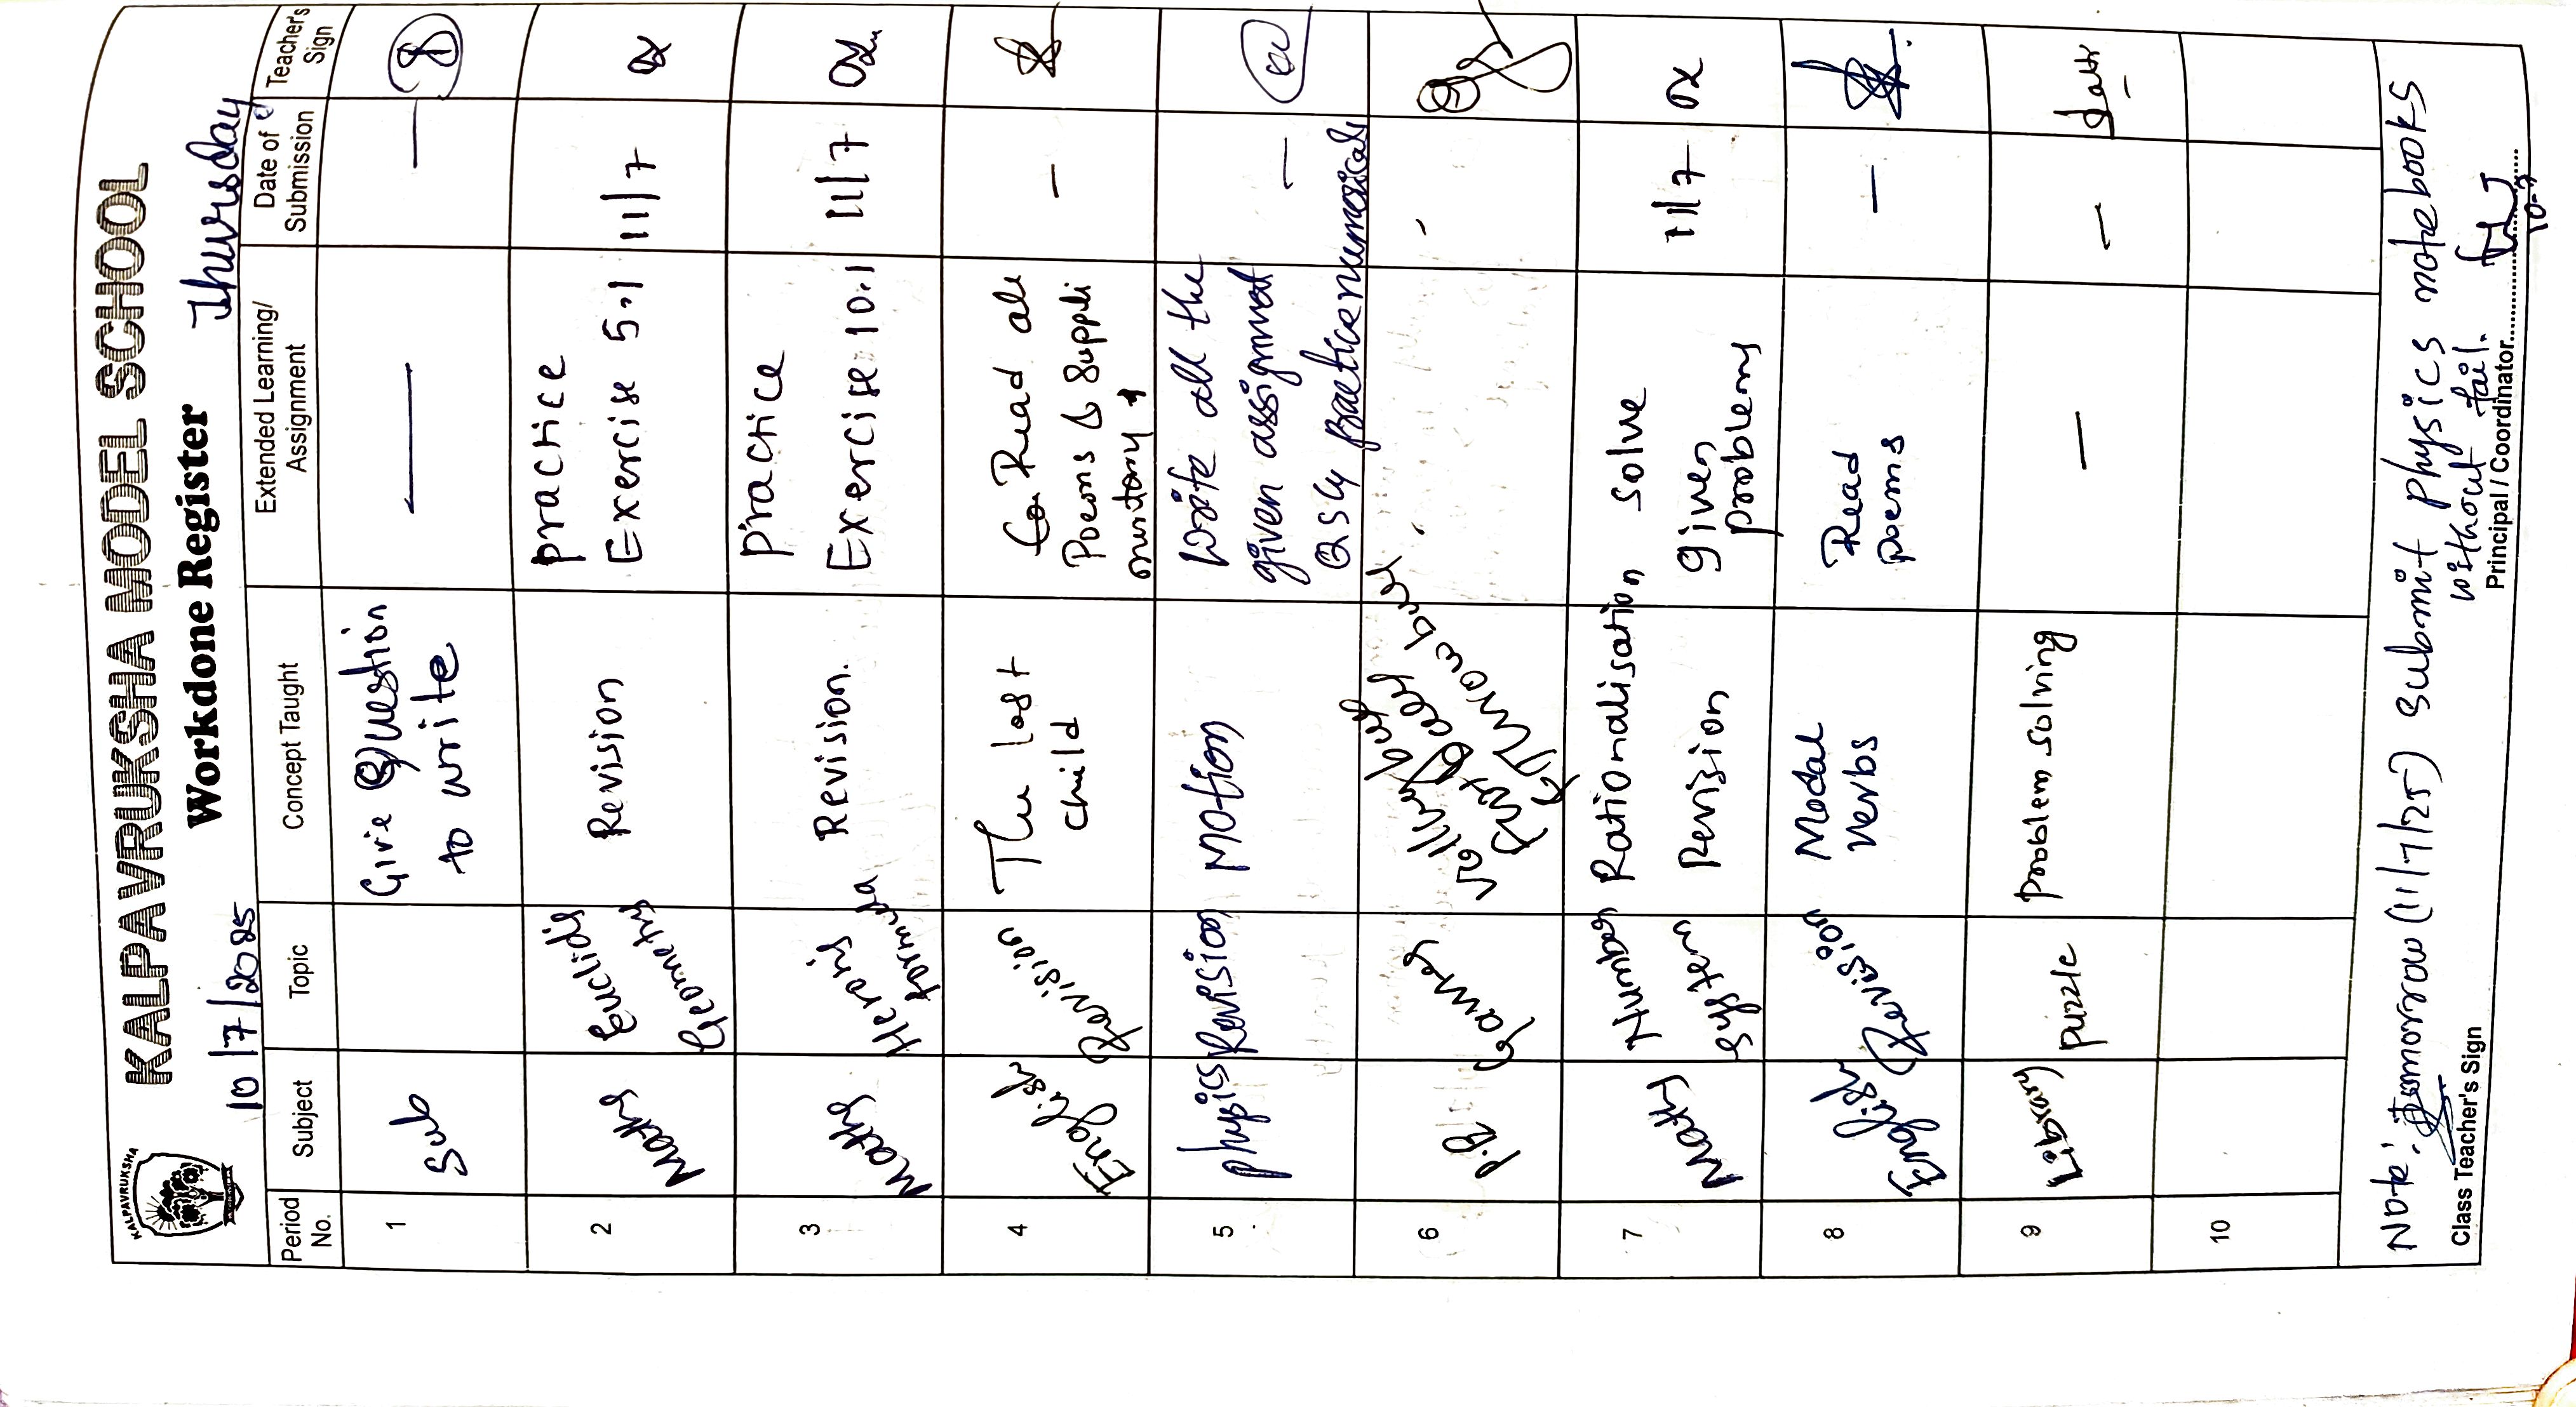 KALPAVRUKSHA
KALPAVRUKSHA MODEL SCHOOL
Workdone Register
10/7/2025 Thursday
Period No. Subject Topic Concept Taught Extended Learning/ Assignment Date of Submission Teacher's Sign
1 Sub Give Question —
to write
2 Maths Euclid's Revision practice 11/7
Geometry Exercise 5.1
3 Maths Heron's Revision. Practice 11/7
formula Exercise 10.1
4 English Revision The lost Read all —
child Poems & Suppli
mentary
5 Physics Revision Motion Write all the —
given assignment
Qs & practice numericals
6 P.E Games Volley ball
& Throw ball
7 Maths Number Rationalisation solve 11/7
system Revision given
problems
8 English Revision Modal Read —
verbs poems
9 Library Puzzle Problem solving — —
10
Note: Tomorrow (11/7/25) Submit physics notebooks
without fail.
Class Teacher's Sign Principal / Coordinator
10-7